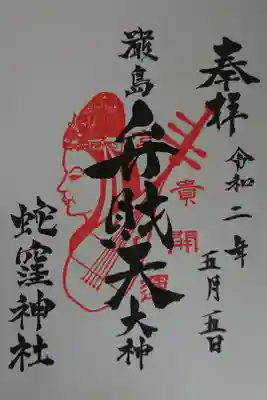 奉拝
令和二年
五月五日
厳島
弁財天
大神
貴
開
運
蛇窪神社